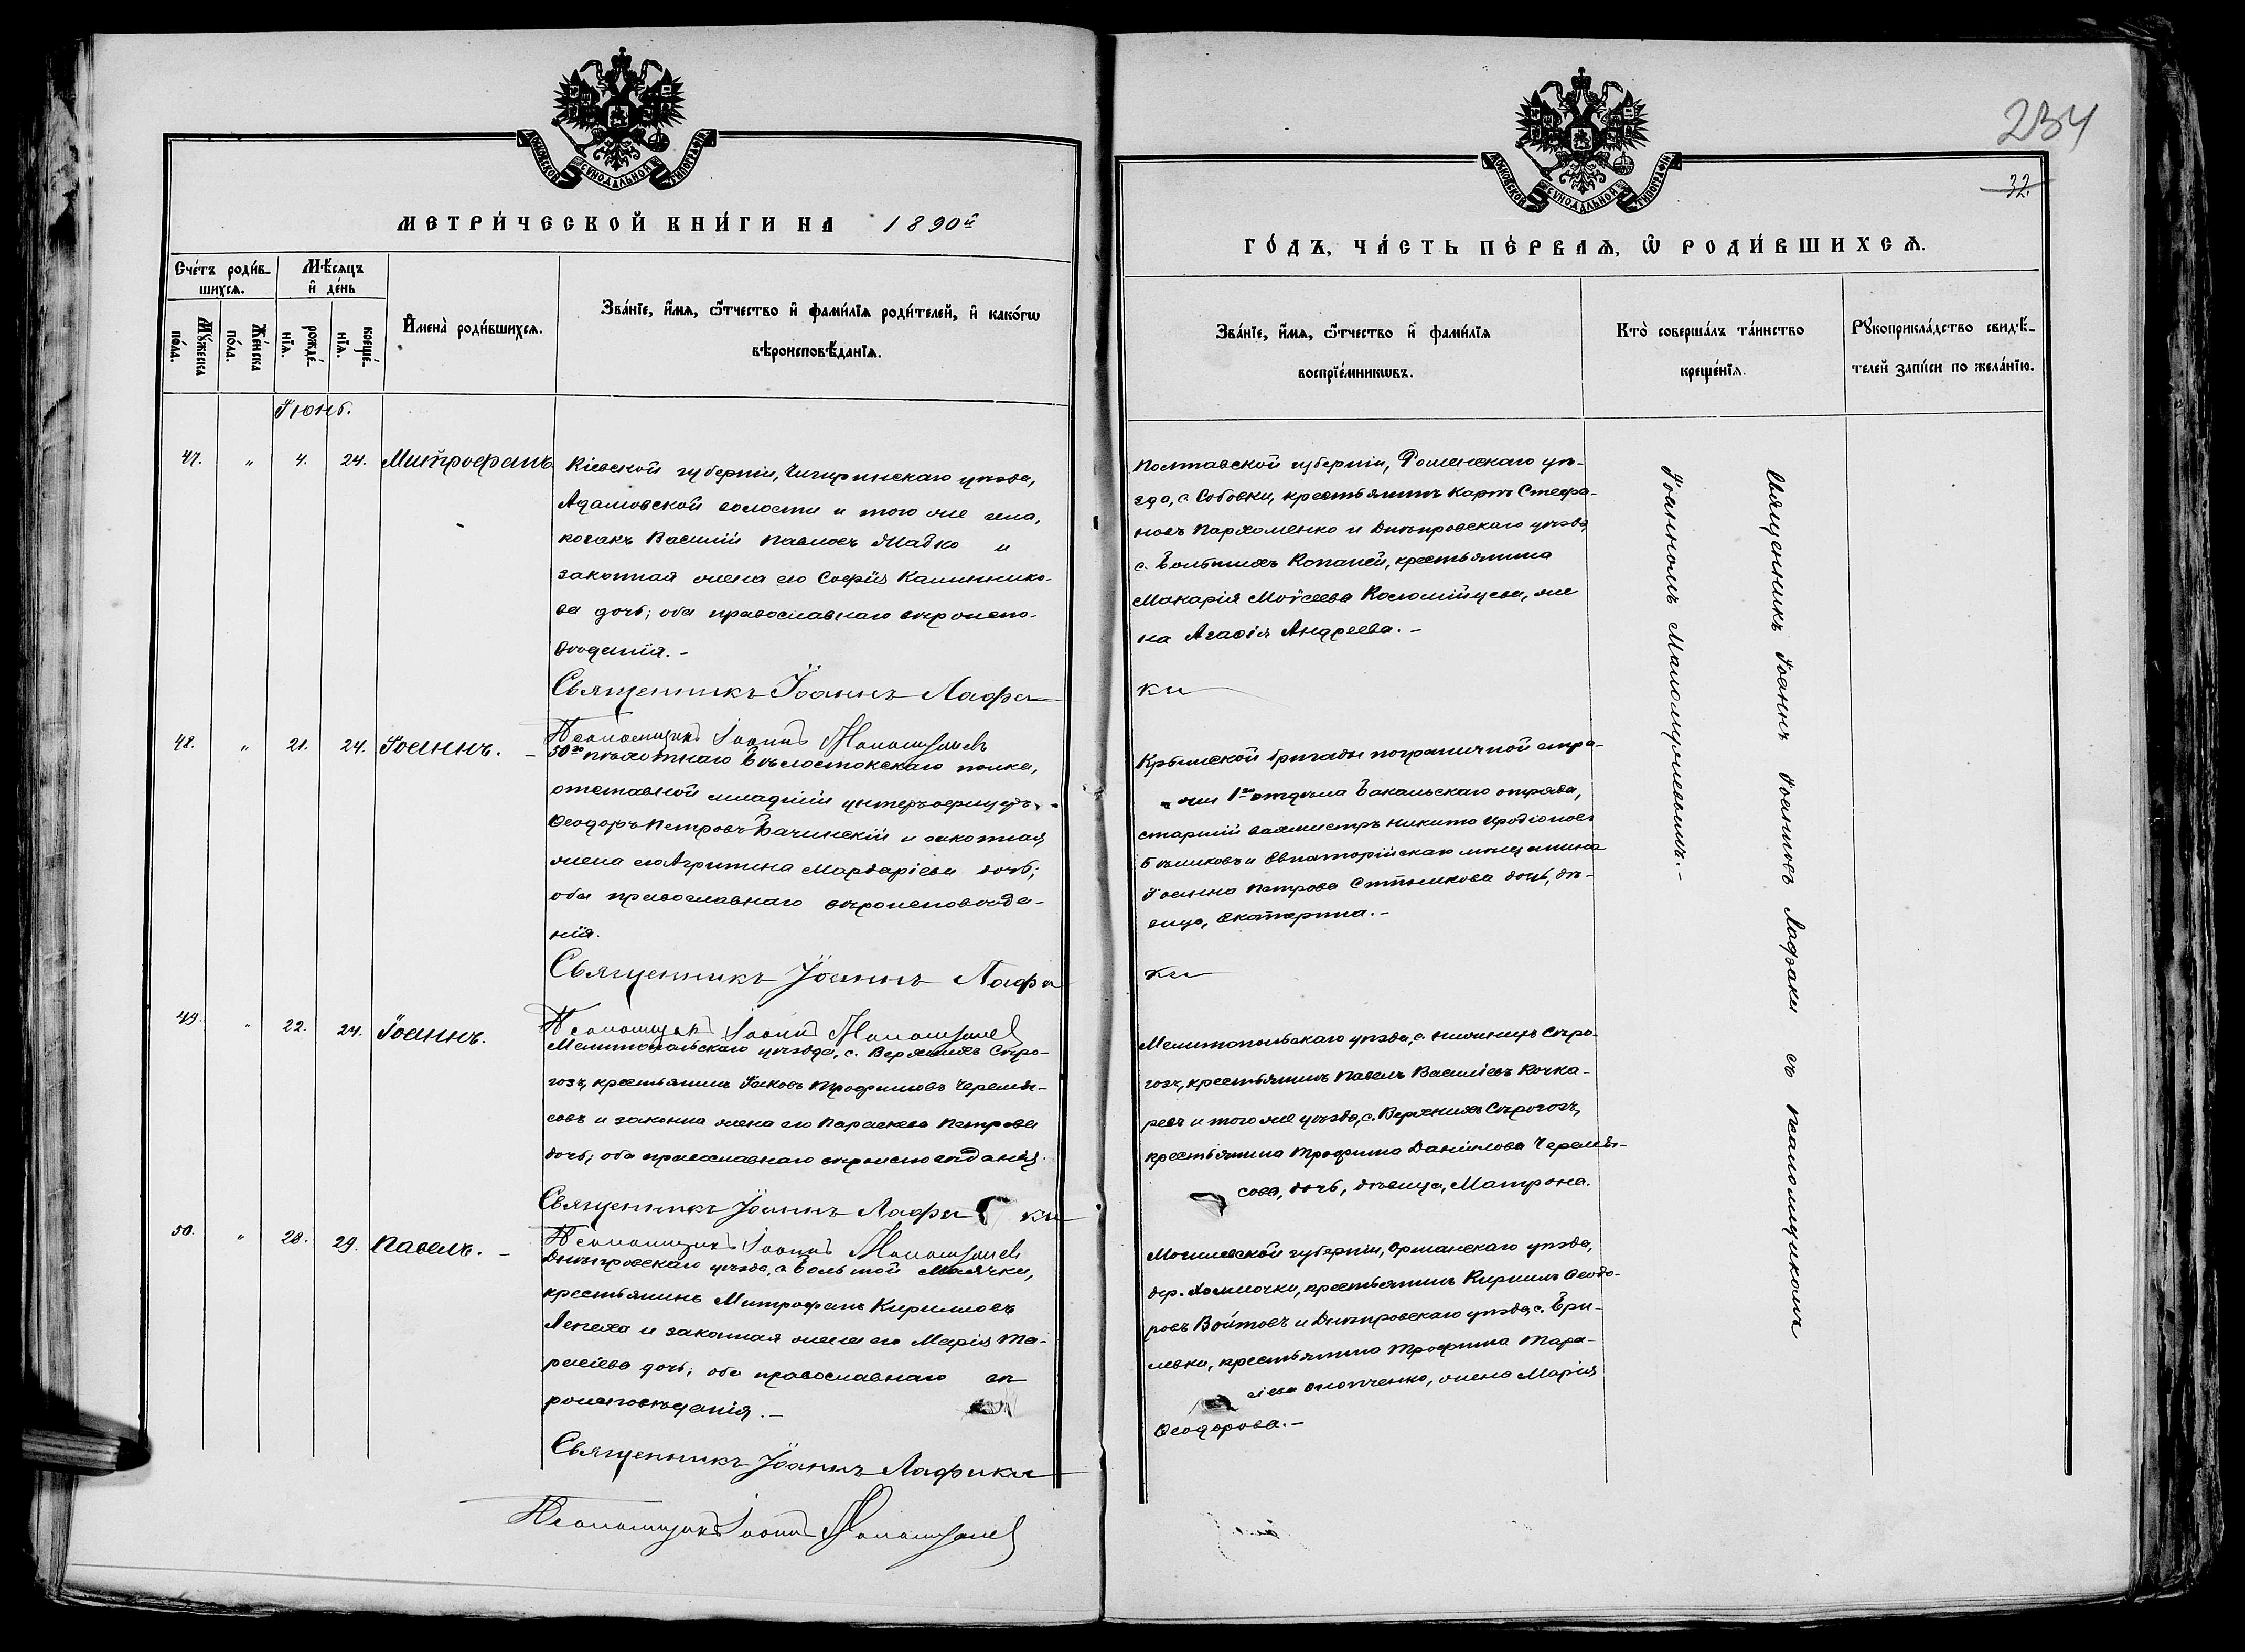 МОСКОВСКОЙ СѴНОДАЛЬНОЙ ТИПОГРАФІИ
МЕТРИ́ЧЕСКОЙ КНИ́ГИ НА 1890й
Сче́тъ роди́в-
шихсѧ.
Мѣ́сѧцъ
и҆ де́нь
Мꙋ́жеска
по́ла.
Же́нска
по́ла.
рожде́-
нїѧ.
креще́-
нїѧ.
И҆мена̀ роди́вшихсѧ.
Зва́нїе, и҆́мѧ, ѻ҆́тчество и҆ фами́лїѧ роди́телей, и҆ како́гѡ
вѣроисповѣ́данїѧ.
Іюнь.
47. " 4. 24. Митрофанъ
Кіевской губерніи, Чигиринскаго уѣзда,
Адамовской волости и того же села,
козакъ Василій Павловъ Мабко и
законная жена его Софія Калиннико-
ва дочь; оба православнаго вѣроиспо-
вѣданія. -
Священникъ Іоаннъ Лафа
Псаломщикъ Іоаннъ
48. " 21. 24. Іоаннъ. -
50го пѣхотнаго Бѣлостокскаго полка,
отставной младшій унтеръ-офицеръ
Ѳеодоръ Петровъ Бачинскій и законная
жена его Агрипина Мардаріева дочь;
оба православнаго вѣроисповѣда-
нія.
Священникъ Іоаннъ Лафа
Псаломщикъ Іоаннъ
49. " 22. 24. Іоаннъ.
Мелитопольскаго уѣзда, с. Верхнихъ Сѣро-
гозъ, крестьянинъ Іаковъ Трофимовъ Черемы-
совъ и законна жена его Параскева Петрова
дочь; оба православнаго вѣроисповѣданія.
Священникъ Іоаннъ Лафа ки
Псаломщикъ Іоаннъ
50. " 28. 29. Павелъ. -
Днѣпровскаго уѣзда, с. Большой Маячки,
крестьянинъ Митрофанъ Кирилловъ
Лепеха и законная жена его Марія Та-
расіева дочь; оба православнаго вѣ-
роисповѣданія. -
Священникъ Іоаннъ Лафаки
Псаломщикъ Іоаннъ
234
32.
МОСКОВСКОЙ СѴНОДАЛЬНОЙ ТИПОГРАФІИ
ГО́ДЪ, ЧА́СТЬ ПЕ́РВАѦ, Ѡ҆ РОДИ́ВШИХСѦ.
Зва́нїе, и҆́мѧ, ѻ҆́тчество и҆ фами́лїѧ
воспрїе́мникѡвъ.
Кто̀ соверша́лъ та́инство
креще́нїѧ.
Рꙋкоприкла́дство свидѣ́-
телей за́писи по жела́нїю.
Полтавской губерніи, Роменскаго уѣ-
зда, с. Собовки, крестьянинъ Карпъ Стефа-
новъ Пархоменко и Днѣпровскаго уѣзда
с. Большихъ Копаней, крестьянина
Макарія Моѵсеева Коломійцева, же
на Агаѳія Андреева. -
ки
Крымской бригады пограничной стра-
жи 1го отдѣла Бакальскаго отряда,
старшій вахмистръ Никита Иродіоновъ
Бѣликовъ и Евпаторійскаго мѣщанина
Іоанна Петрова дочь, дѣ-
вица, Екатерина. -
ки
Мелитопольскаго уѣзда, с. Нижнихъ Сѣро-
гозъ, крестьянинъ Павелъ Василіевъ Кочка-
ревъ и того же уѣзда, с. Верхнихъ Сѣрогозъ,
крестьянина Трофима Даніилова Черемы-
сова, дочь, дѣвица, Матрона.
Могилевской губерніи, Оршанскаго уѣзда,
дер. крестьянинъ Кириллъ Ѳеодо-
ровъ Войтовъ и Днѣпровскаго уѣзда, с. Бри-
левки, крестьянина Трофима Тара-
жена Марія
Ѳеодорова. -
Священникъ Іоаннъ Іоанновъ Лафаки съ псаломщикомъ
Іоанномъ